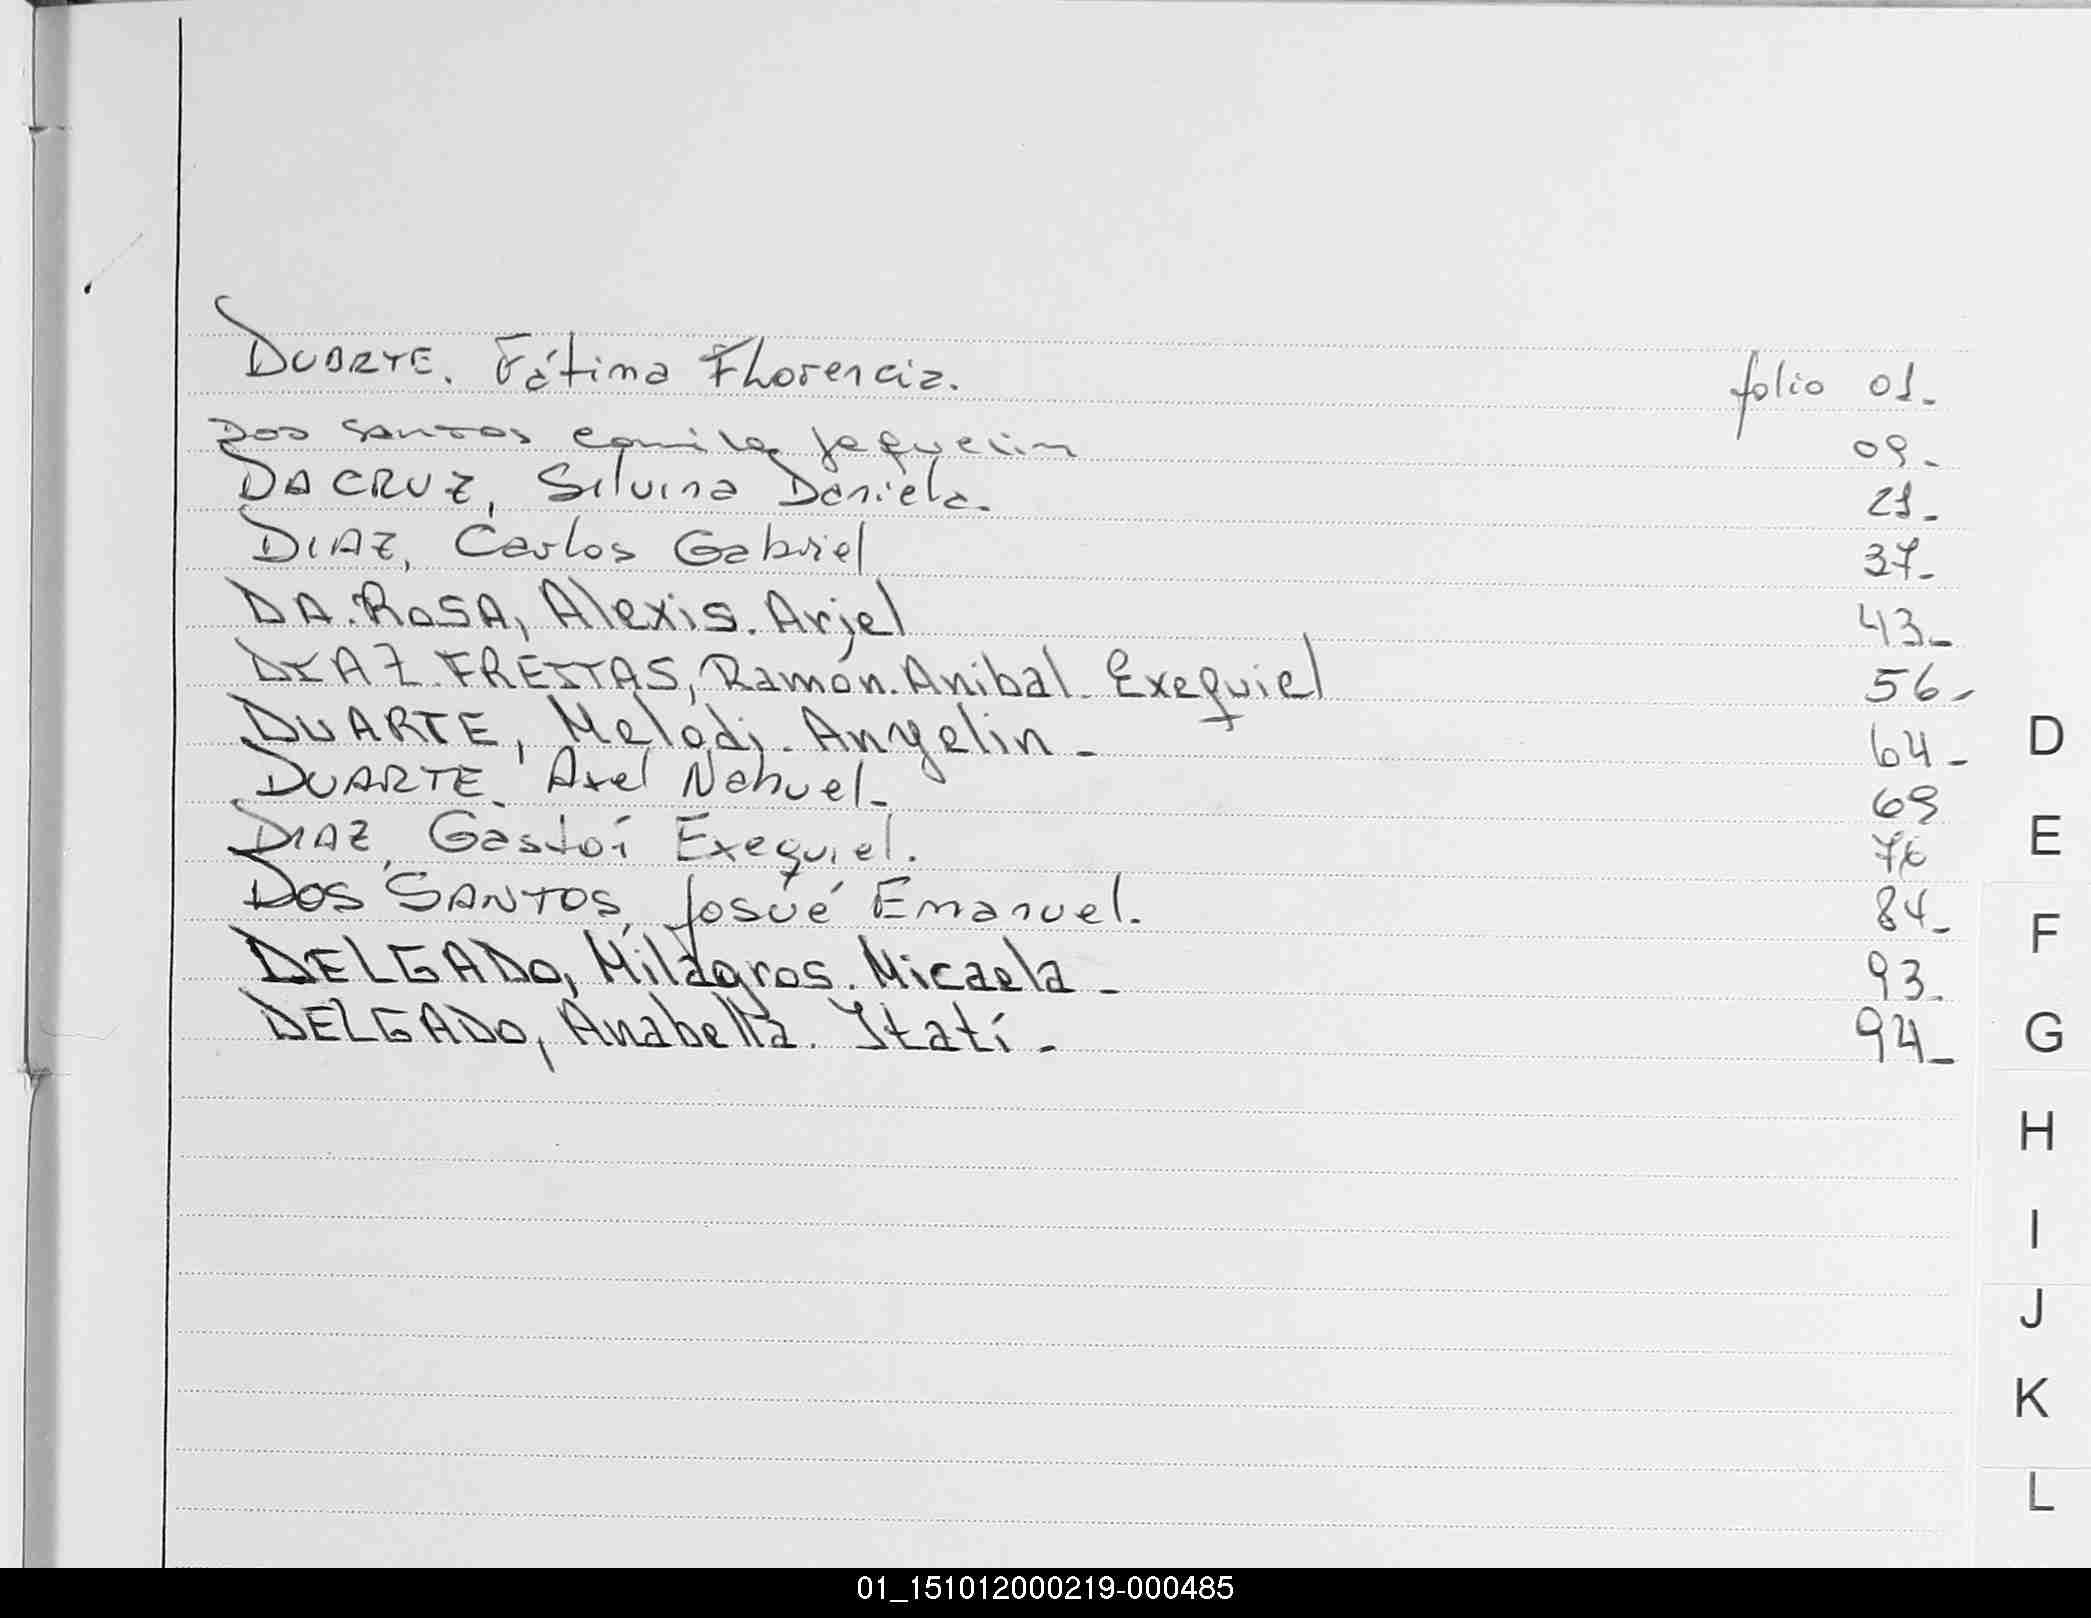 DUARTE. Fátima Florencia. folio 01-
Dos santos camila Jaquelin 09-
DA CRUZ, Silvina Daniela. 21-
DIAZ, Carlos Gabriel 37-
DA. ROSA, Alexis. Ariel 43-
DIAZ. FREITAS, Ramón. Anibal. Exequiel 56-
DUARTE, Melodi. Angelin - 64-
DUARTE, Axel Nahuel- 69
DIAZ, Exequiel. 76
DOS SANTOS, Josué Emanuel. 84-
DELGADO, Milagros. Micaela - 93-
DELGADO, Anabella. Itatí - 94-
D
E
F
G
H
I
J
K
L
01_151012000219-000485